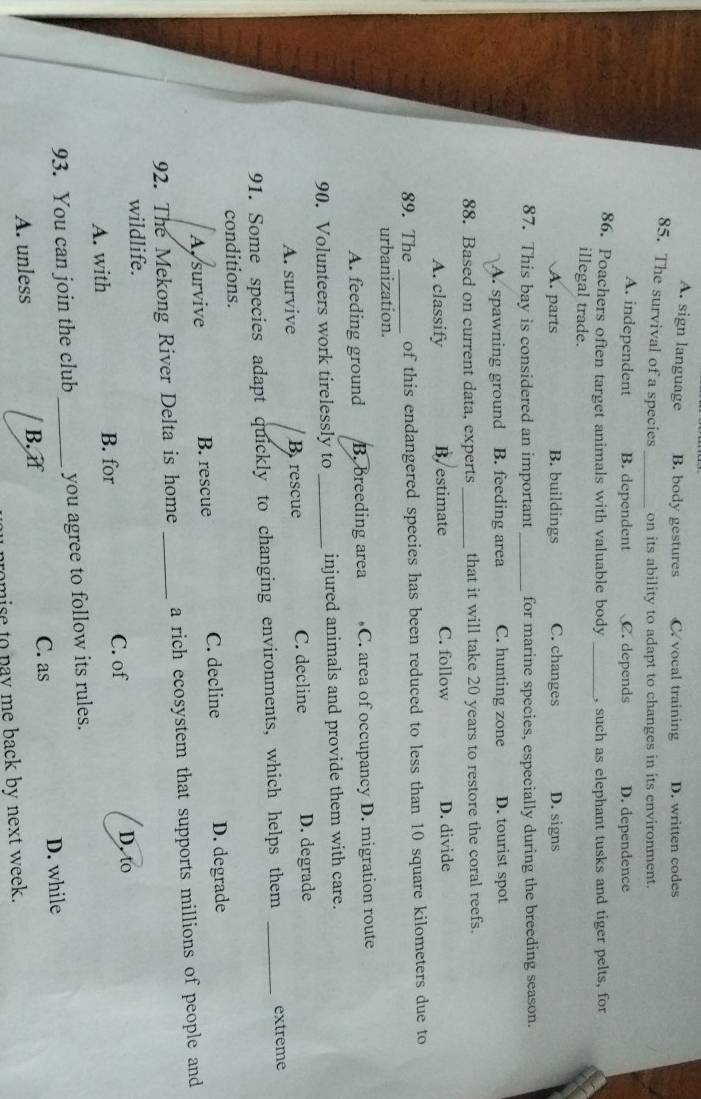 A. sign language B. body gestures C. vocal training D. written codes
85. The survival of a species ______ on its ability to adapt to changes in its environment.
A. independent B. dependent C. depends D. dependence
86. Poachers often target animals with valuable body ______, such as elephant tusks and tiger pelts, for
illegal trade.
A. parts B. buildings C. changes D. signs
87. This bay is considered an important ______ for marine species, especially during the breeding season.
A. spawning ground B. feeding area C. hunting zone D. tourist spot
88. Based on current data, experts ______ that it will take 20 years to restore the coral reefs.
A. classify B. estimate C. follow D. divide
89. The ______ of this endangered species has been reduced to less than 10 square kilometers due to
urbanization.
A. feeding ground B. breeding area C. area of occupancy D. migration route
90. Volunteers work tirelessly to ______ injured animals and provide them with care.
A. survive B. rescue C. decline D. degrade
91. Some species adapt quickly to changing environments, which helps them ______ extreme
conditions.
A. survive B. rescue C. decline D. degrade
92. The Mekong River Delta is home ______ a rich ecosystem that supports millions of people and
wildlife.
A. with B. for C. of D. to
93. You can join the club ______ you agree to follow its rules.
A. unless B. if C. as D. while
you promise to pay me back by next week.